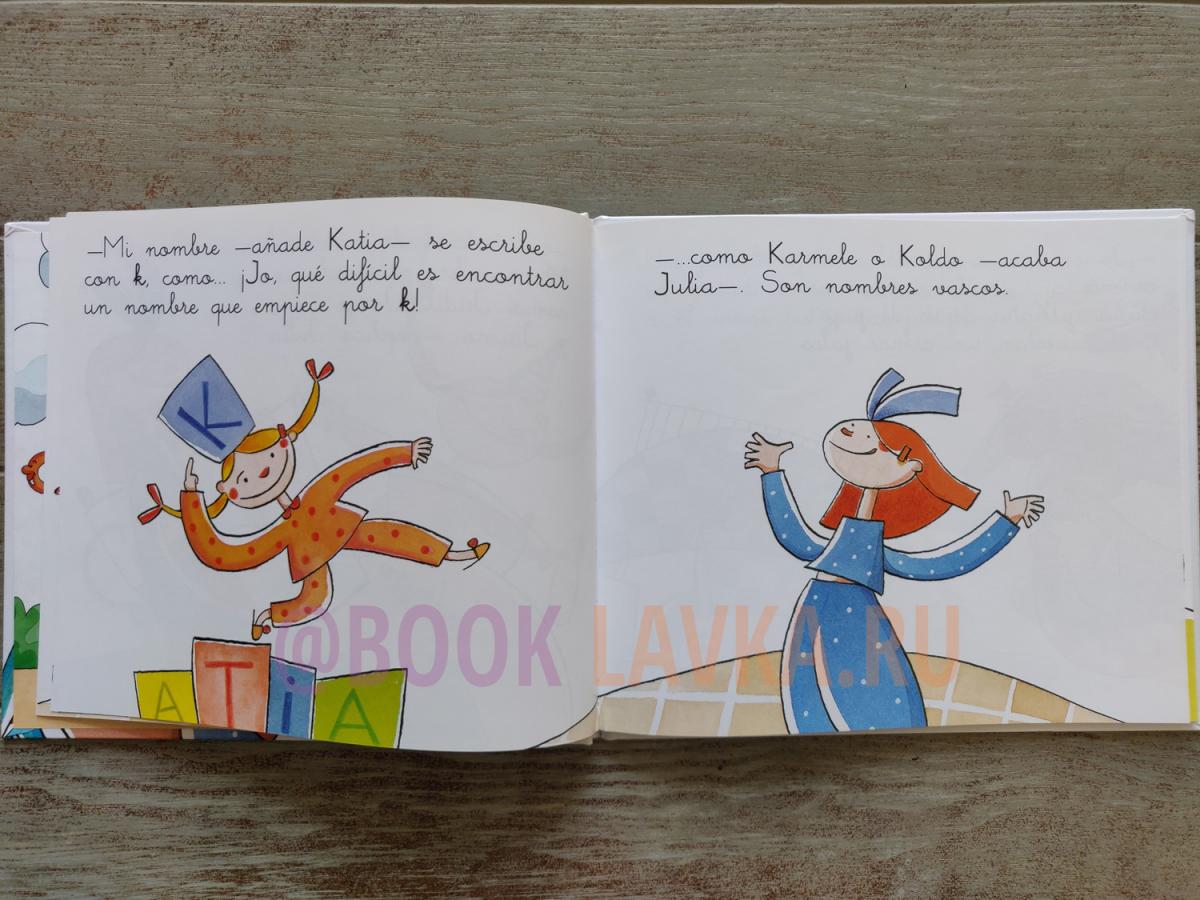 —Mi nombre —añade Katia— se escribe
con k, como... ¡Jo, qué difícil es encontrar
un nombre que empiece por k!
K
A T i A
—...como Karmele o Koldo —acaba
Julia—. Son nombres vascos.
@BOOK LAVKA.RU